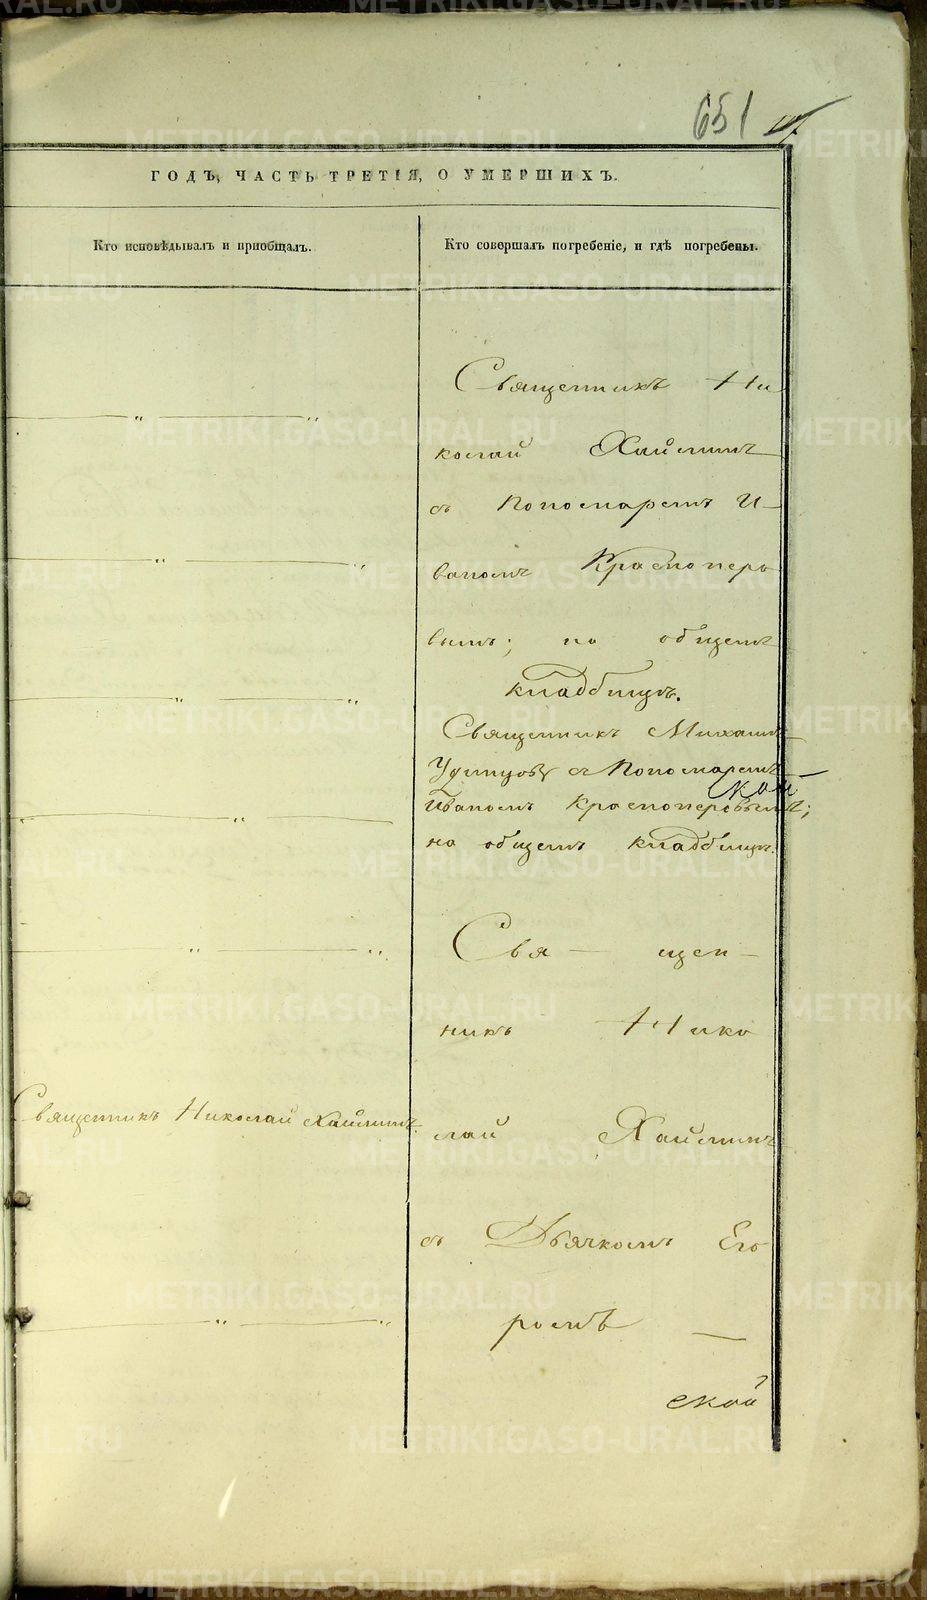 651
ГОДЪ, ЧАСТЬ ТРЕТІЯ, О УМЕРШИХЪ.
Кто исповѣдывалъ и пріобщалъ.
Кто совершалъ погребеніе, и гдѣ погребены.
Священникъ Ни
колай Хайлинъ
съ Пономаремъ И-
ваномъ Красноперо
вымъ; на общемъ
кладбищѣ.
Священникъ Михаилъ
Удинцовъ съ Пономаремъ
Иваномъ Красноперовымъ;
на общемъ кладбищѣ.
Свя — щен —
никъ Нико
лай Хайлинъ
Священникъ Николай Хайлинъ.
съ Дьячкомъ Его
ромъ —
ской
METRIKI.GASO-URAL.RU